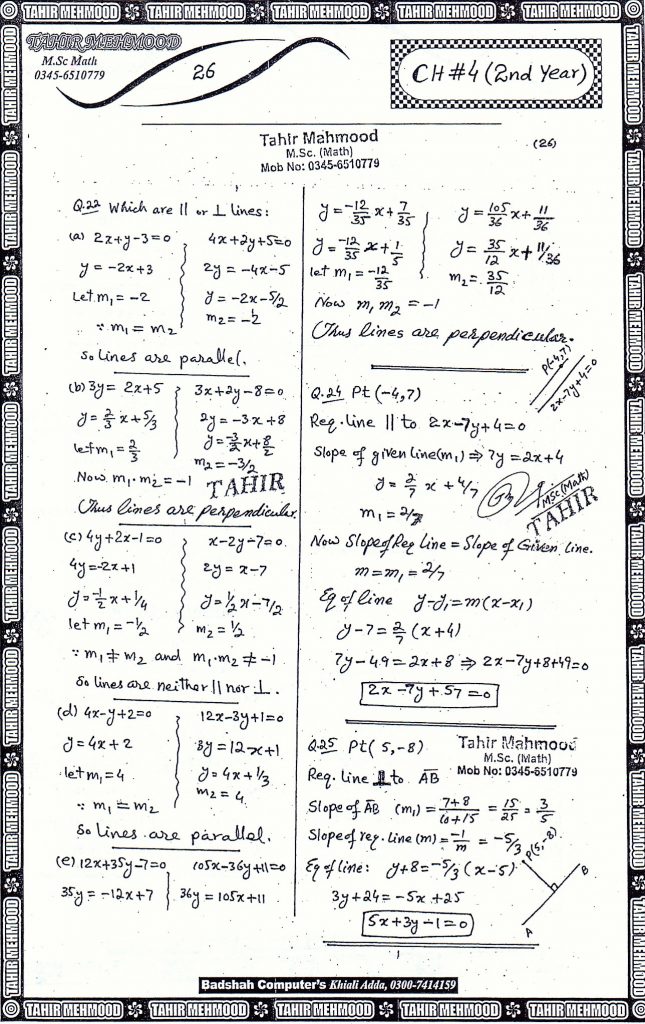 TAHIR MEHMOOD TAHIR MEHMOOD TAHIR MEHMOOD TAHIR MEHMOOD TAHIR MEHMOOD
TAHIR MEHMOOD
M.Sc Math
0345-6510779
26
CH #4 (2nd Year)
Tahir Mahmood
M.Sc. (Math)
Mob No: 0345-6510779
(26)
Q.22 Which are || or ⊥ lines:
(a) 2x+y-3=0 4x+2y+5=0
y = -2x+3 2y = -4x-5
Let m₁ = -2 y = -2x-5/2
m₂ = -2
∵ m₁ = m₂
So lines are parallel.
(b) 3y = 2x+5 3x+2y-8=0
y = 2/3 x + 5/3 2y = -3x+8
let m₁ = 2/3 y = -3/2 x + 8/2
m₂ = -3/2
Now m₁.m₂ = -1
TAHIR
Thus lines are perpendicular.
(c) 4y+2x-1=0 x-2y-7=0
4y=-2x+1 2y = x-7
y = -1/2 x + 1/4 y = 1/2 x - 7/2
let m₁ = -1/2 m₂ = 1/2
∵ m₁ ≠ m₂ and m₁.m₂ ≠ -1
So lines are neither || nor ⊥.
(d) 4x-y+2=0 12x-3y+1=0
y = 4x+2 3y = 12x+1
let m₁ = 4 y = 4x + 1/3
m₂ = 4
∵ m₁ = m₂
So lines are parallel.
(e) 12x+35y-7=0 105x-36y+11=0
35y = -12x+7 36y = 105x+11
y = -12/35 x + 7/35 y = 105/36 x + 11/36
y = -12/35 x + 1/5 y = 35/12 x + 11/36
let m₁ = -12/35 m₂ = 35/12
Now m₁ m₂ = -1
Thus lines are perpendicular.
P(-4,7)
2x-7y+4=0
Q.24 Pt (-4,7)
Req. line || to 2x-7y+4=0
Slope of given line(m₁) ⇒ 7y = 2x+4
y = 2/7 x + 4/7
m₁ = 2/7
MSc (Math)
TAHIR
Now Slope of Req Line = Slope of Given Line.
m = m₁ = 2/7
Eq of line y-y₁ = m(x-x₁)
y-7 = 2/7 (x+4)
7y-49 = 2x+8 ⇒ 2x-7y+8+49=0
2x-7y+57=0
Q.25 Pt( 5,-8)
Tahir Mahmood
M.Sc. (Math)
Mob No: 0345-6510779
Req. Line ⊥ to AB
Slope of AB (m₁) = 7+8/10+15 = 15/25 = 3/5
Slope of req. line (m) = -1/m = -5/3
P(5,-8)
Eq of line: y+8 = -5/3 (x-5)
B
3y+24 = -5x+25
5x+3y-1=0
A
Badshah Computer's Khiali Adda, 0300-7414159
TAHIR MEHMOOD TAHIR MEHMOOD TAHIR MEHMOOD TAHIR MEHMOOD TAHIR MEHMOOD